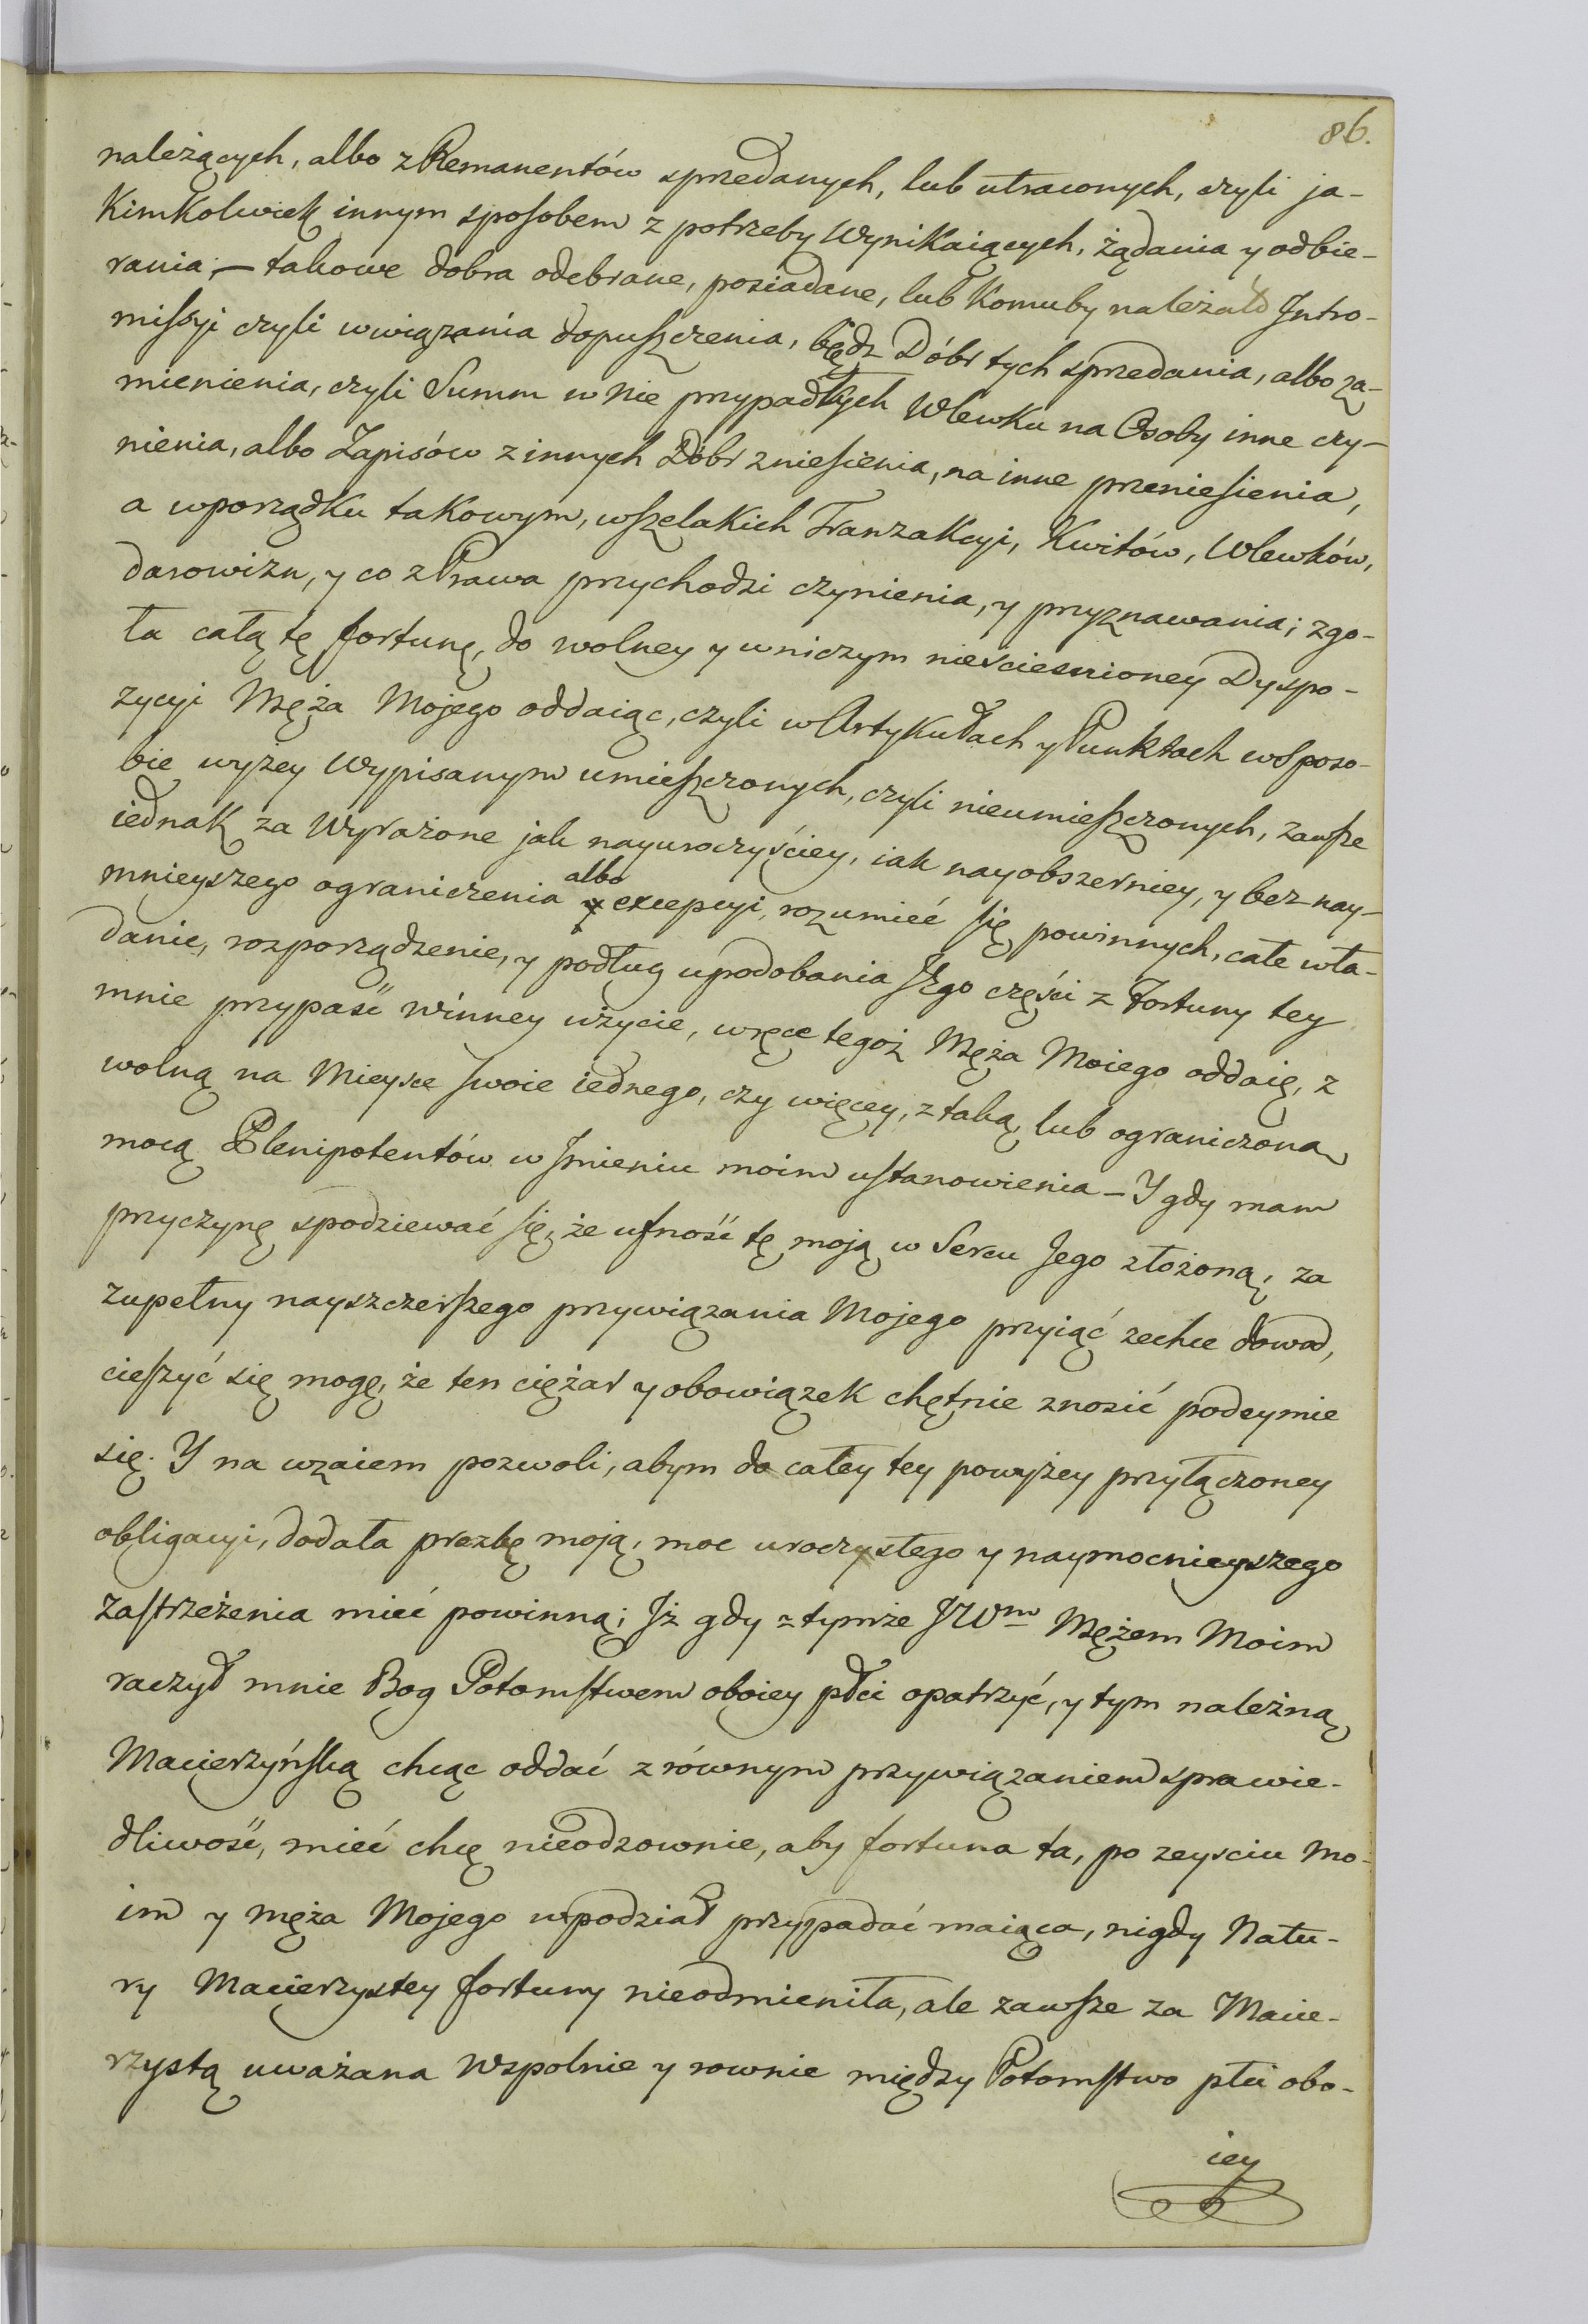 86.
należących, albo z Remanentów sprzedanych, lub utraconych, czyli ja-
kimkolwiek innym sposobem z potrzeby wynikaiących, żądania y odbie-
rania; — takowe dobra odebrane, posiadane, lub komuby należało Intro-
missyi czyli wwiązania dopuszczenia, bądz Dóbr tych sprzedania, albo za-
mienienia, czyli Summ w nie przypadłych Wlewku na Osoby inne czy-
nienia, albo Zapisów z innych Dóbr zniesienia, na inne przeniesienia,
a wporządku takowym, wszelakich Tranzakcyi, Kwitów, Wlewków,
darowizn, y co z Prawa przychodzi czynienia, y przyznawania; zgo-
ła całą tę fortunę, do wolney y wniczym nieściesnioney Dyspo-
zycyi Męża Mojego oddaiąc, czyli w Artykułach y Punktach w Sposo-
bie wyżey wypisanym umieszczonych, czyli nieumieszczonych, zawsze
iednak za wyrażone jak nayuroczyściey, iak nayobszerniey, y bez nay-
mnieyszego ograniczenia albo excepcyi, rozumieć się powinnych, całe wła-
danie, rozporządzenie, y podług upodobania Jego części z Fortuny tey
mnie przypaść winney użycie, w ręce tegoż Męża Moiego oddaię, z
wolną na Mieysce swoie iednego, czy więcey, z taką, lub ograniczoną
mocą Plenipotentów w Jmieniu moim ustanowienia — Y gdy mam
przyczynę spodziewać się, że ufność tę moją w Sercu Jego złożoną, za
zupełny nayszczerszego przywiązania Mojego przyiąć zechce dowod,
cieszyć się mogę, że ten ciężar y obowiązek chętnie znosić podeymie
się. Y na wzaiem pozwoli, abym do całey tey powyżey przyłączoney
obligacyi, dodała prozbę moją, moc uroczystego y naymocnieyszego
zastrzeżenia mieć powinną; Jż gdy z tymże JWm Mężem Moim
raczył mnie Bog Potomstwem oboiey płci opatrzyć, y tym należną
Macierzyńską chcąc oddać z równym przywiązaniem sprawie-
dliwość, mieć chcę nieodzownie, aby fortuna ta, po zeysciu Mo-
im y męża Mojego w podział przypadać maiąca, nigdy Natu-
ry Macierzystey fortuny nieodmieniła, ale zawsze za Macie-
rzystą uważana Wspolnie y rownie między Potomstwo płci obo-
iey